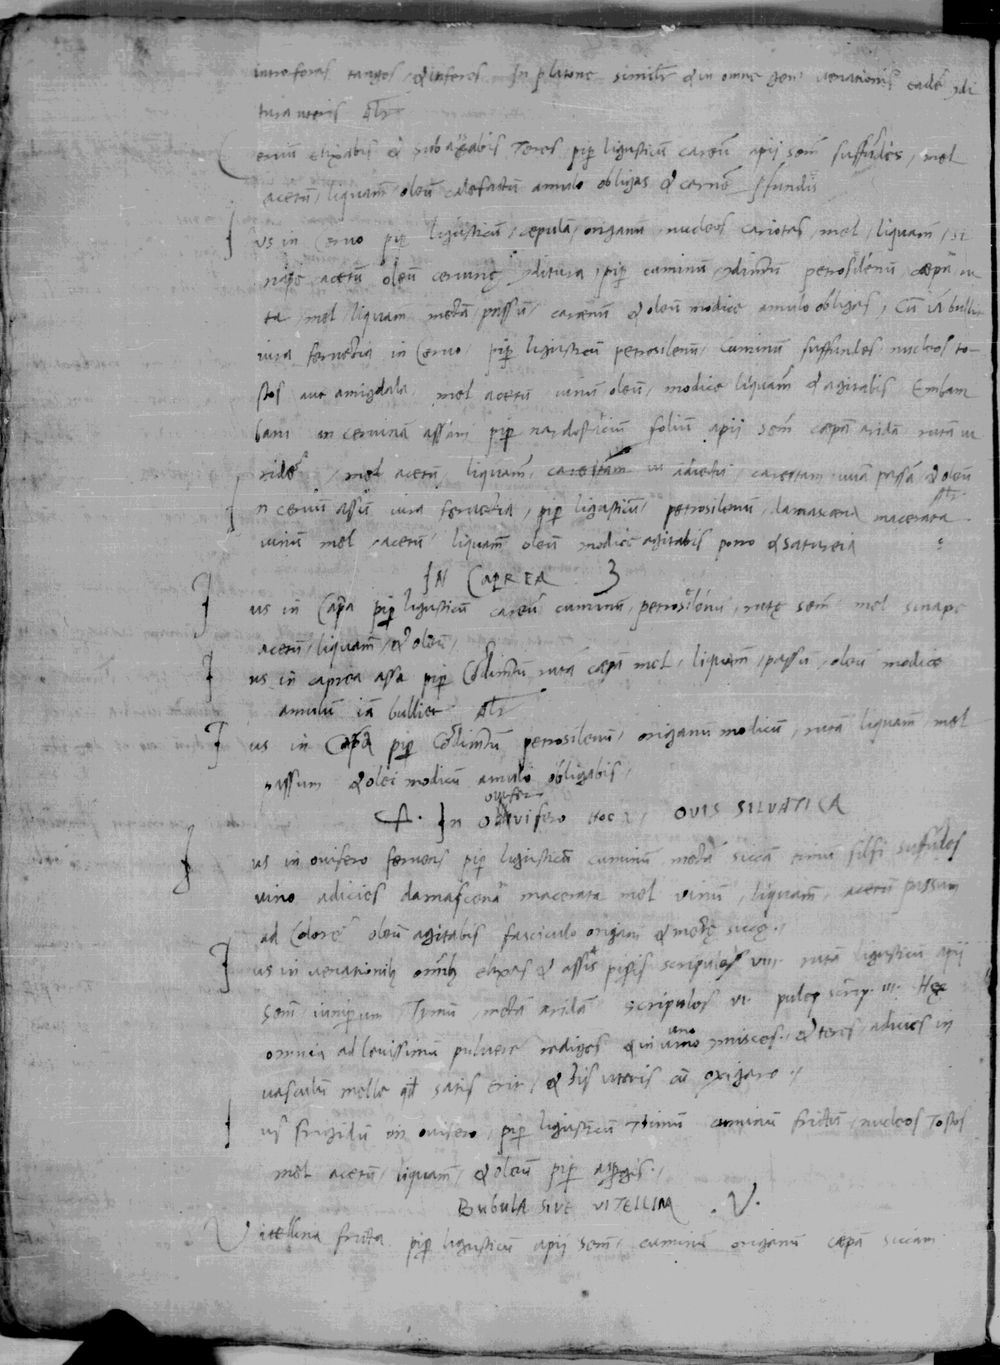 intro foras tangos et inferes. In platone similr et in omne gen' venationis eade 9di
tura uteris Alr
Cervu elixabis et subaxabis Teres pip ligusticu careu apij sem suffudes, mel
acetu, liquam, oleu calefactu amulo obligas et carne pfundis
Ius in Cervo pip ligusticu, cepula, origanu nucleos cariotas, mel, liquam, si
nape acetu oleu cervine 9ditura, pip cuminu 9dimtu petrosilenu cæpa ru
ta, mel, liquam, meta, passu, carenu et oleu modice amulo obligas, Cu ia bullit
iura ferventia in Cervo, pip ligusticu petrosilenu, Cuminu suffundes, nucleos to-
stos aut amigdala, mel acetu vinu oleu, modice liquam et agitabis Embam
bam in cervina assam pip nardosticiu foliu apij sem cæpa arida ruta vi
ride, mel acetu, liquam, careotam adiectu, careotam, uva passa, et oleu
In cervu assu iura ferventia, pip ligusticu, petrosilenu, damascena macerata
vinu mel, acetu, liquam oleu modice agitabis porro et satureia
IN CAPREA 3
Ius in Capra pip ligusticu careu cuminu, petrosilenu, rute sem mel sinape
acetu, liquam, et oleu,
Ius in caprea assa pip Codimtu ruta cæpa mel, liquam, passu, oleu modice
amulum ia bulliet Alr
Ius in Capra pip Codimtu petrosilenu, origanu modicu, ruta liquam, mel
passum et olei modicu amulo obligabis,
4. In ovifero Hoc e, OVIS SILVATICA
Ius in ovifero fervens pip ligusticu cuminu meta sicca timu silfi suffudes
vino adicies damascena macerata mel vinu, liquam, acetu passum
ad Colore oleu agitabis fasciculo origani et mete sicce.,
Ius in venationib omib elixas et assas pipis scripulos viii ruta ligusticu apij
sem iuniperum, Timu, meta arida scripulos vi. puleg scrip. iii. Hec
omnia ad levissimu pulvere rediges et in uno 9misces, et teres, adicies in
vasculu melle qd satis erit, et his uteris cu oxigaro.,
Ius frigidu in ovifero, pip ligusticu timu cuminu frictu, nucleos Tostos
mel acetu, liquam, et oleu pip aspgis.,
BubulA SIVE VITELLINA .V.
Vitellina fricta pip ligusticu apij sem, cuminu origanu cæpa siccam